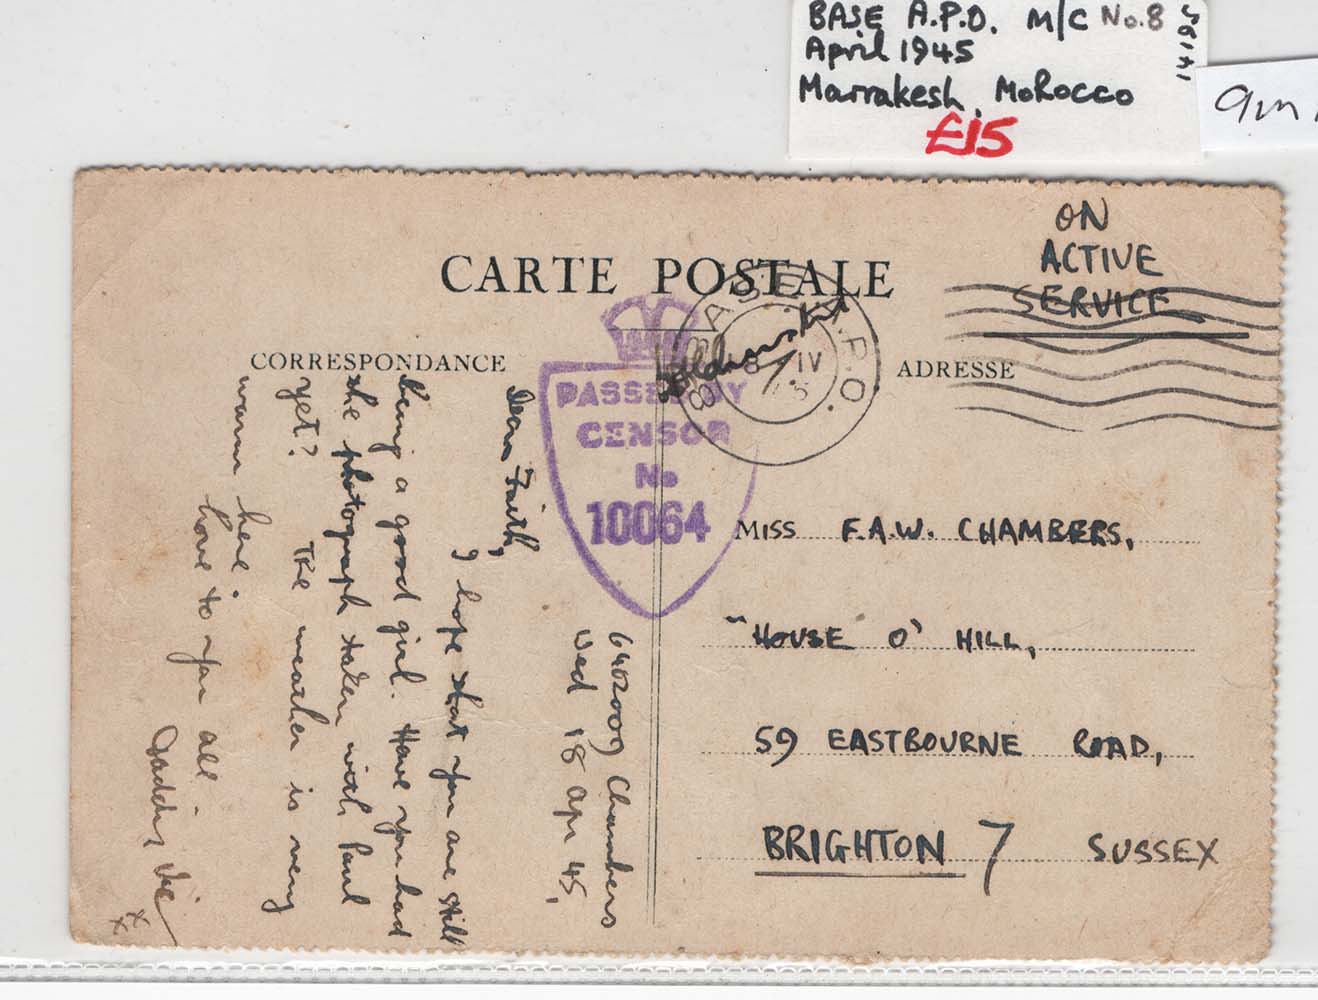 BASE A.P.O. M/C No.8
April 1945
Marrakesh, Morocco
£15
ON
ACTIVE
SERVICE
CARTE POSTALE
CORRESPONDANCE
ADRESSE
BASE A.P.O.
18 IV
45
PASSED BY
CENSOR
No
10064
6402009 Chambers
Wed 18 Apr 45,
Dear Faith,
I hope that you are still
being a good girl. Have you had
the photograph taken with Paul
yet?
The weather is very
warm here.
Love to you all -
Daddy, Vic
x x
MISS F.A.W. CHAMBERS,
"HOUSE O' HILL,
59 EASTBOURNE ROAD,
BRIGHTON 7 SUSSEX